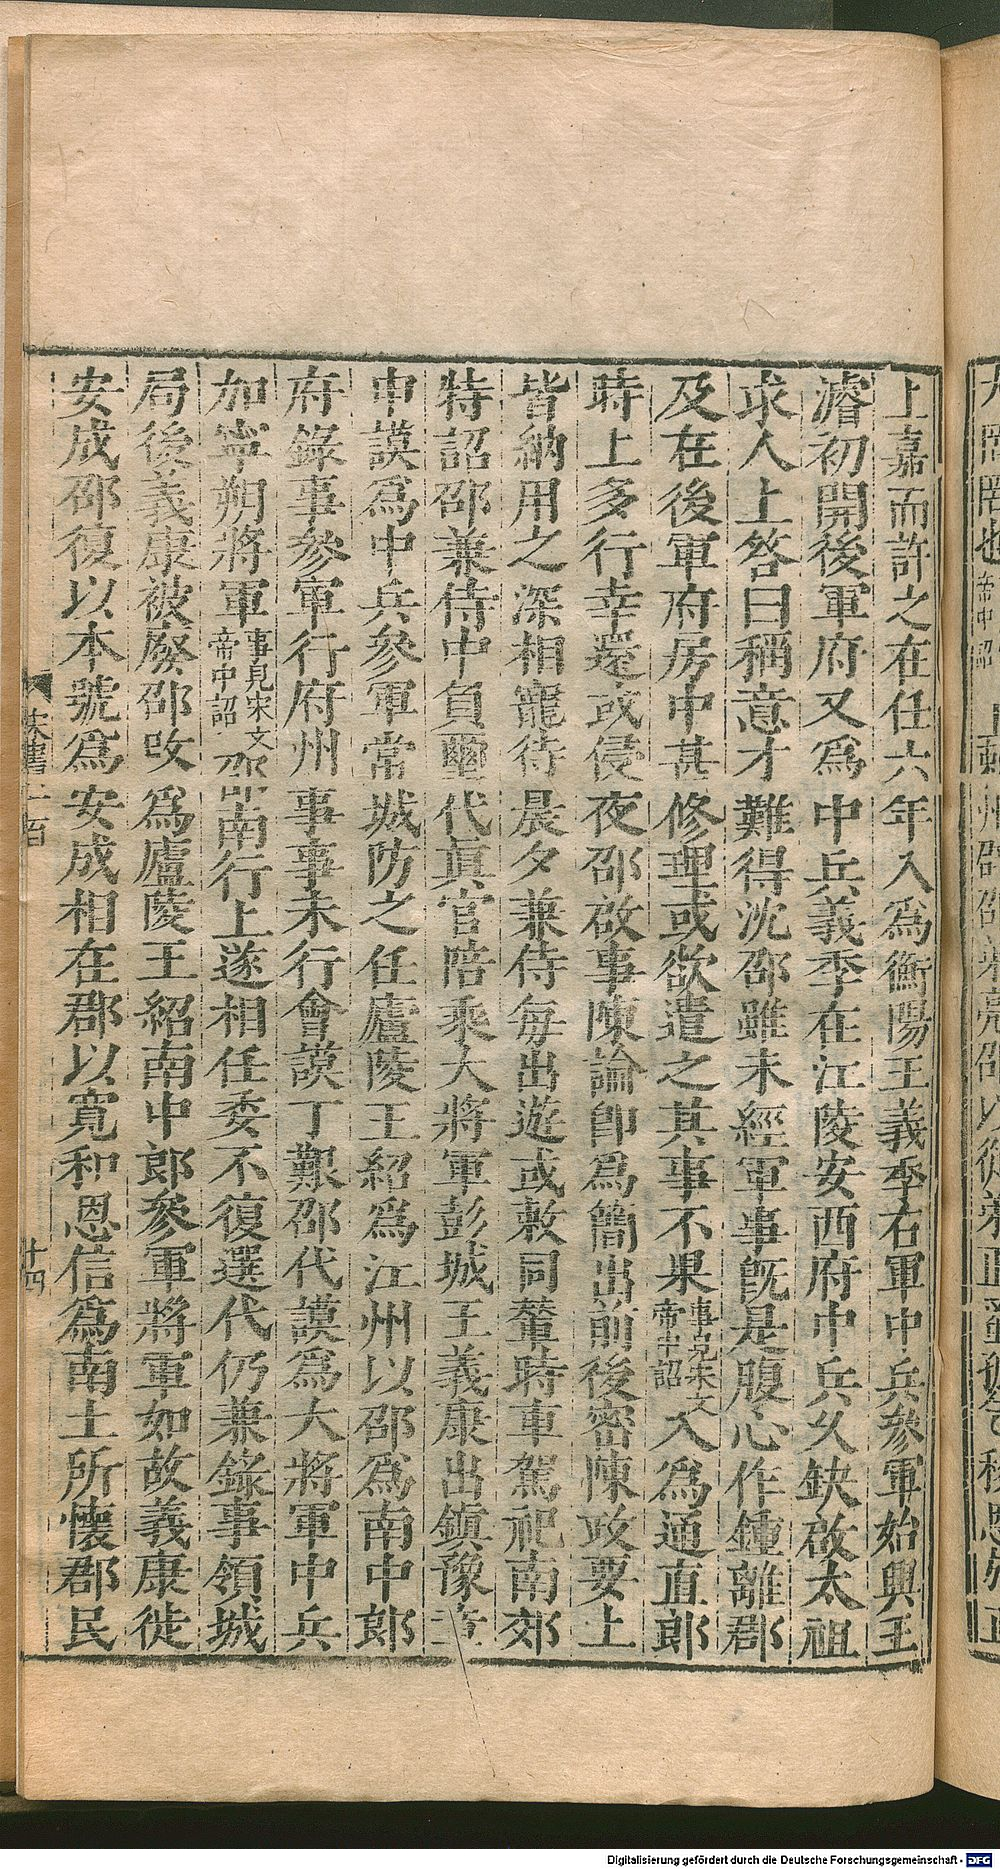 上嘉而許之在任六年入爲衡陽王義季右軍中兵參軍始興王
濬初開後軍府又爲中兵義季在江陵安西府中兵久缺啟太祖
求人上答曰稱意才難得沈邵雖未經軍事旣是腹心作鍾離郡
及在後軍府房中甚修理或欲遣之其事不果事見宋文帝中詔入爲通直郎
時上多行幸還或侵夜邵啟事陳論卽爲簡出前後密陳政要上
皆納用之深相寵待晨夕兼侍每出遊或敕同輦時車駕祀南郊
特詔邵兼侍中負璽代眞官陪乘大將軍彭城王義康出鎮豫章
申謨爲中兵參軍常城防之任廬陵王紹爲江州以邵爲南中郎
府錄事參軍行府州事事未行會謨丁艱邵代謨爲大將軍中兵
加寧朔將軍事見宋文帝中詔邵南行上遂相任委不復選代仍兼錄事領城
局後義康被廢邵改爲廬陵王紹南中郎參軍將軍如故義康徙
安成邵復以本號爲安成相在郡以寬和恩信爲南土所懷郡民
宋書一百
十四
Digitalisierung gefördert durch die Deutsche Forschungsgemeinschaft - DFG